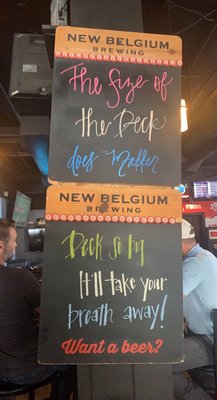 NEW BELGIUM
BREWING
The Size of
the Deck
does Matter
NEW BELGIUM
BREWING
Deck so big
It'll take your
breath away!
Want a beer?